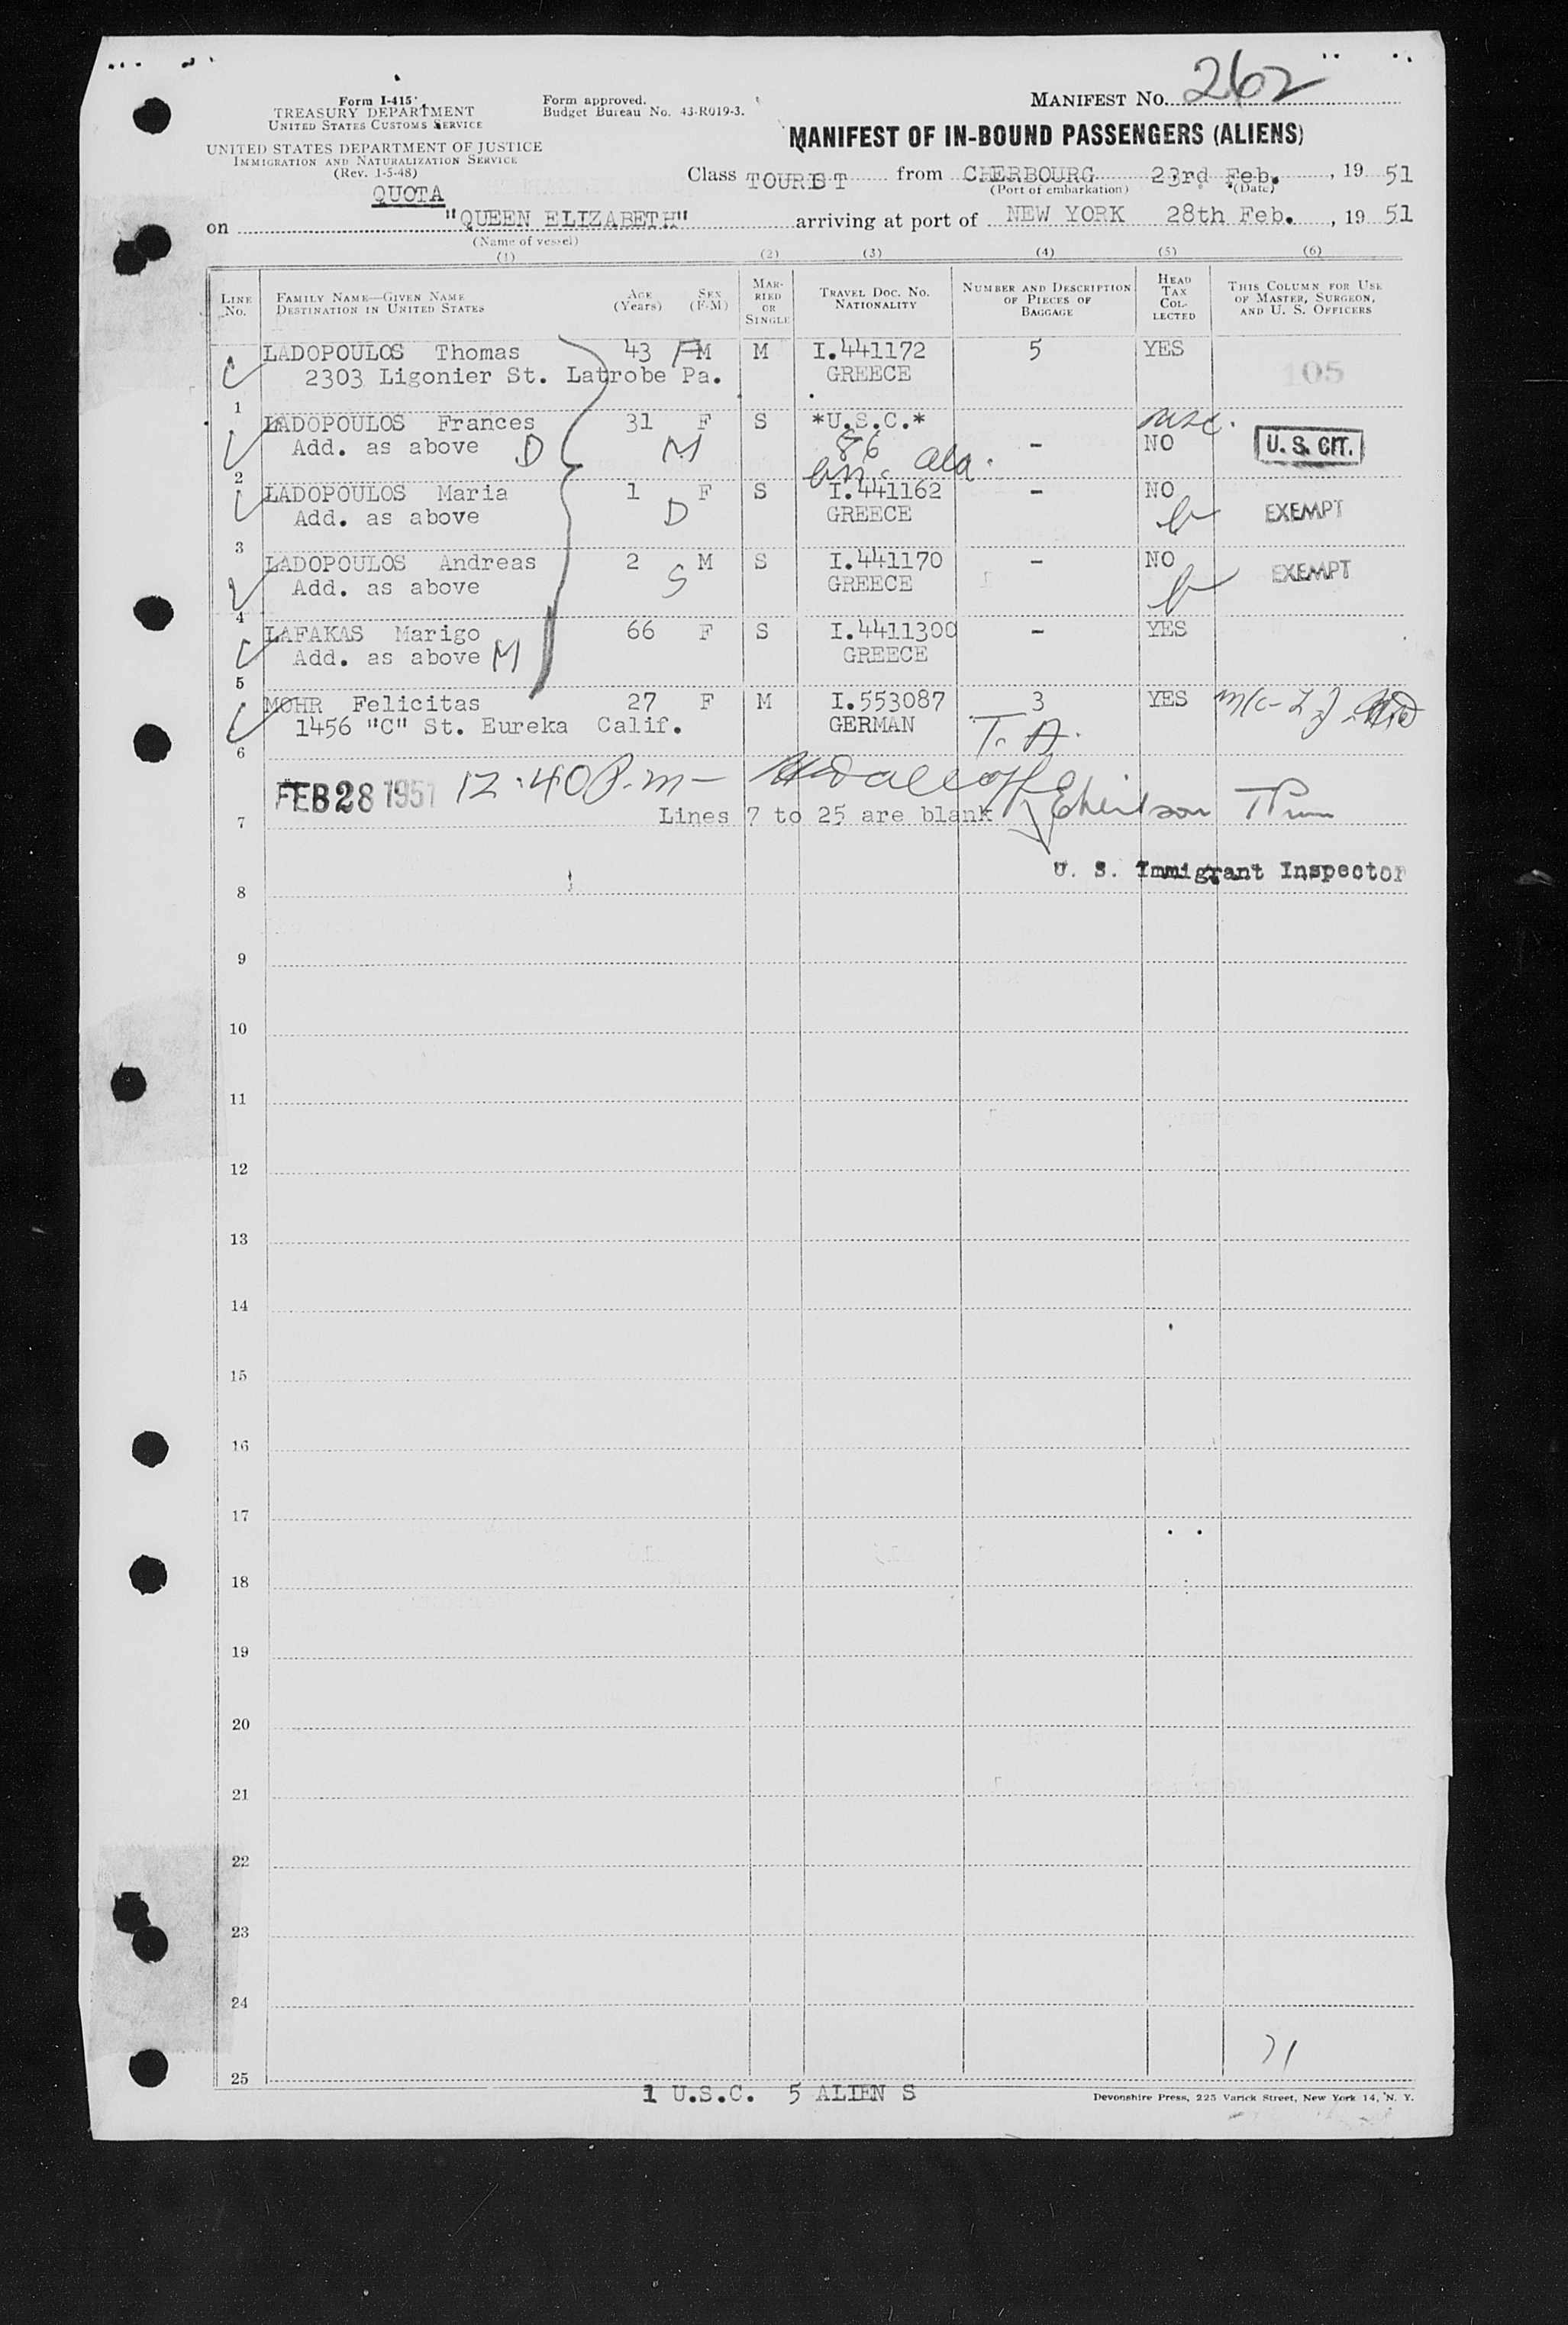 Form I-415
TREASURY DEPARTMENT
UNITED STATES CUSTOMS SERVICE
UNITED STATES DEPARTMENT OF JUSTICE
IMMIGRATION AND NATURALIZATION SERVICE
(Rev. 1-5-48)
Form approved.
Budget Bureau No. 43-R019-3.
MANIFEST No. 262
MANIFEST OF IN-BOUND PASSENGERS (ALIENS)
Class TOURIST from CHERBOURG 23rd Feb. , 19 51
(Port of embarkation) (Date)
QUOTA
on "QUEEN ELIZABETH" arriving at port of NEW YORK 28th Feb. , 19 51
(Name of vessel)
(1) (2) (3) (4) (5) (6)
LINE No. FAMILY NAME—GIVEN NAME DESTINATION IN UNITED STATES AGE (Years) SEX (F-M) MARRIED OR SINGLE TRAVEL DOC. No. NATIONALITY NUMBER AND DESCRIPTION OF PIECES OF BAGGAGE HEAD TAX COLLECTED THIS COLUMN FOR USE OF MASTER, SURGEON, AND U. S. OFFICERS
LADOPOULOS Thomas 43 F M M I.441172 5 YES
2303 Ligonier St. Latrobe Pa. GREECE 105
1
LADOPOULOS Frances 31 F S *U.S.C.* usc.
Add. as above D M 86 - NO U. S. CIT.
2 ala.
LADOPOULOS Maria 1 F S I.441162 - NO
Add. as above D GREECE EXEMPT
3
LADOPOULOS Andreas 2 M S I.441170 - NO
Add. as above S GREECE EXEMPT
4
LAFAKAS Marigo 66 F S I.4411300 - YES
Add. as above M GREECE
5
MOHR Felicitas 27 F M I.553087 3 YES
1456 "C" St. Eureka Calif. GERMAN T. A.
6
FEB 28 1951 12:40 P.m-
7 Lines 7 to 25 are blank
U. S. Immigrant Inspector
8
9
10
11
12
13
14
15
16
17
18
19
20
21
22
23
24
71
25
1 U.S.C. 5 ALIEN S
Devonshire Press, 225 Varick Street, New York 14, N. Y.